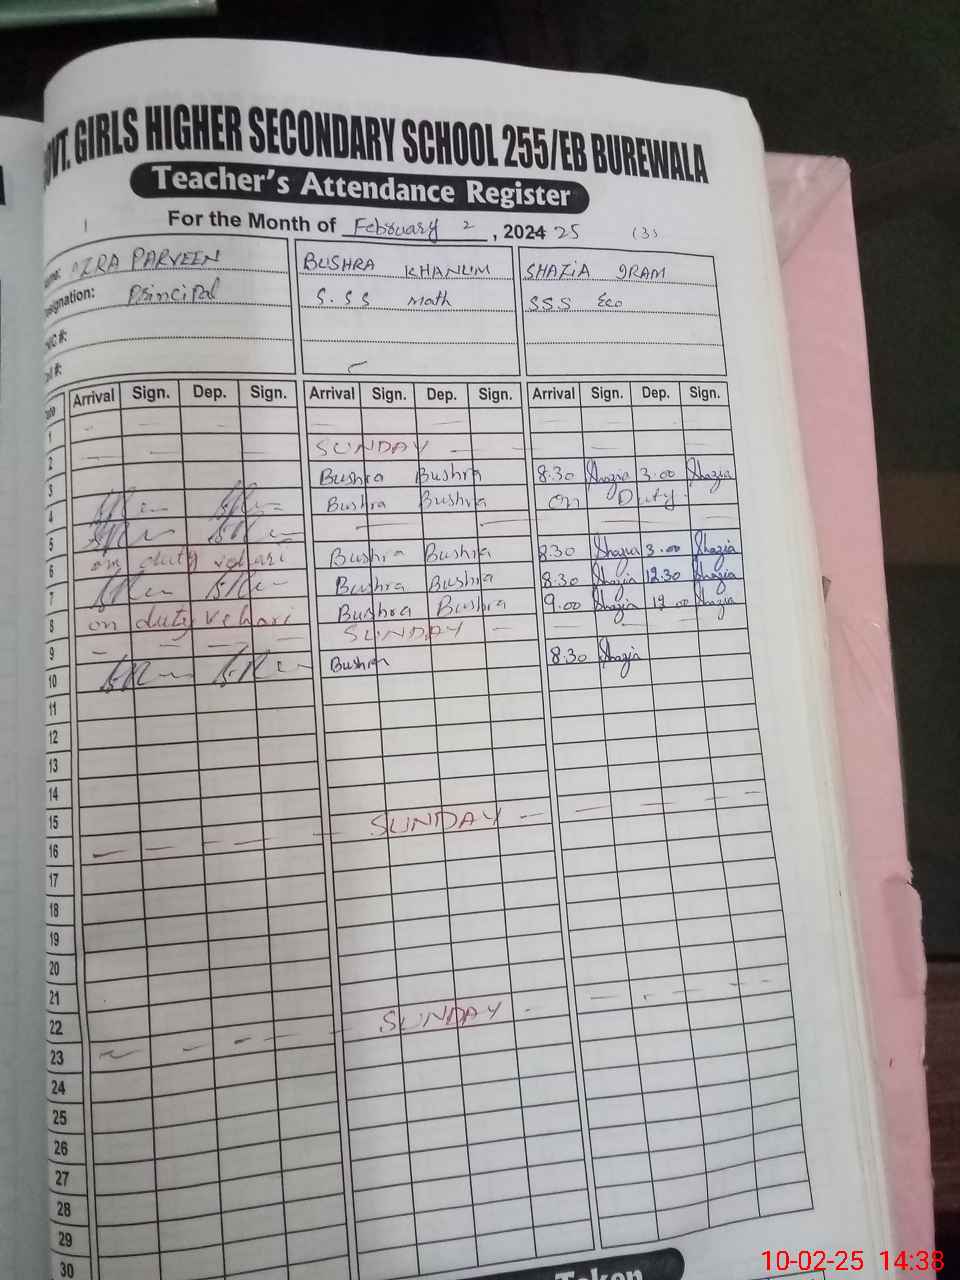 GOVT. GIRLS HIGHER SECONDARY SCHOOL 255/EB BUREWALA
Teacher's Attendance Register
For the Month of February 2, 2024 25 (3)
PARVEEN BUSHRA KHANUM SHAZIA IRAM
Designation: Principal S.SS Math SSS Eco
Arrival Sign. Dep. Sign. Arrival Sign. Dep. Sign. Arrival Sign. Dep. Sign.
1
2 SUNDAY
3 Bushra Bushra 8:30 Shazia 3:00 Shazia
4 Bushra Bushra On Duty
5
6 on duty vehari Bushra Bushra 8:30 Shazia 3:00 Shazia
7 Bushra Bushra 8:30 Shazia 12:30 Shazia
8 on duty vehari Bushra Bushra 9:00 Shazia Shazia
9 SUNDAY
10 Bushra 8:30 Shazia
11
12
13
14
15
16 SUNDAY
17
18
19
20
21
22
23 SUNDAY
24
25
26
27
28
29
30
Taken
10-02-25 14:38